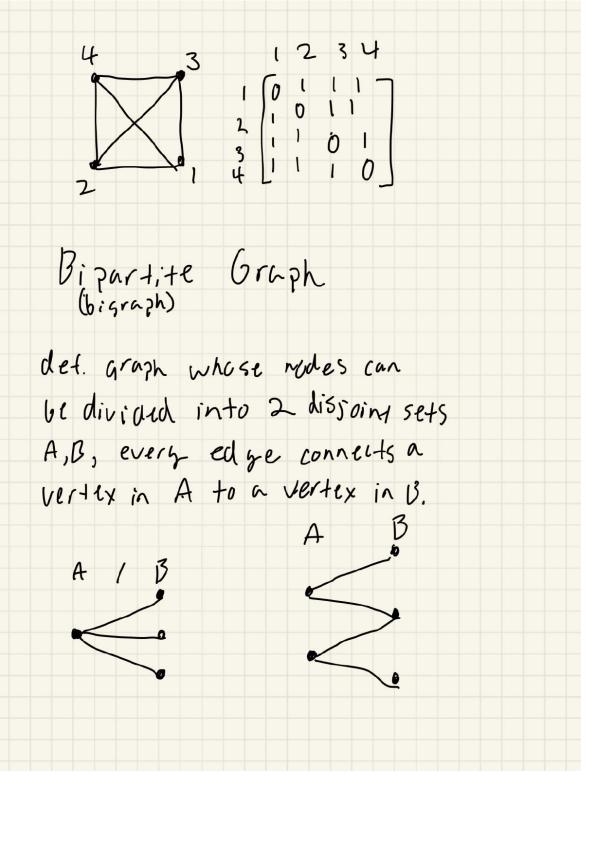 4 3
2 1
1 2 3 4
1 0 1 1 1
2 1 0 1 1
3 1 1 0 1
4 1 1 1 0
Bipartite Graph
(bigraph)
def. graph whose nodes can
be divided into 2 disjoint sets
A,B, every edge connects a
vertex in A to a vertex in B.
A / B
A B